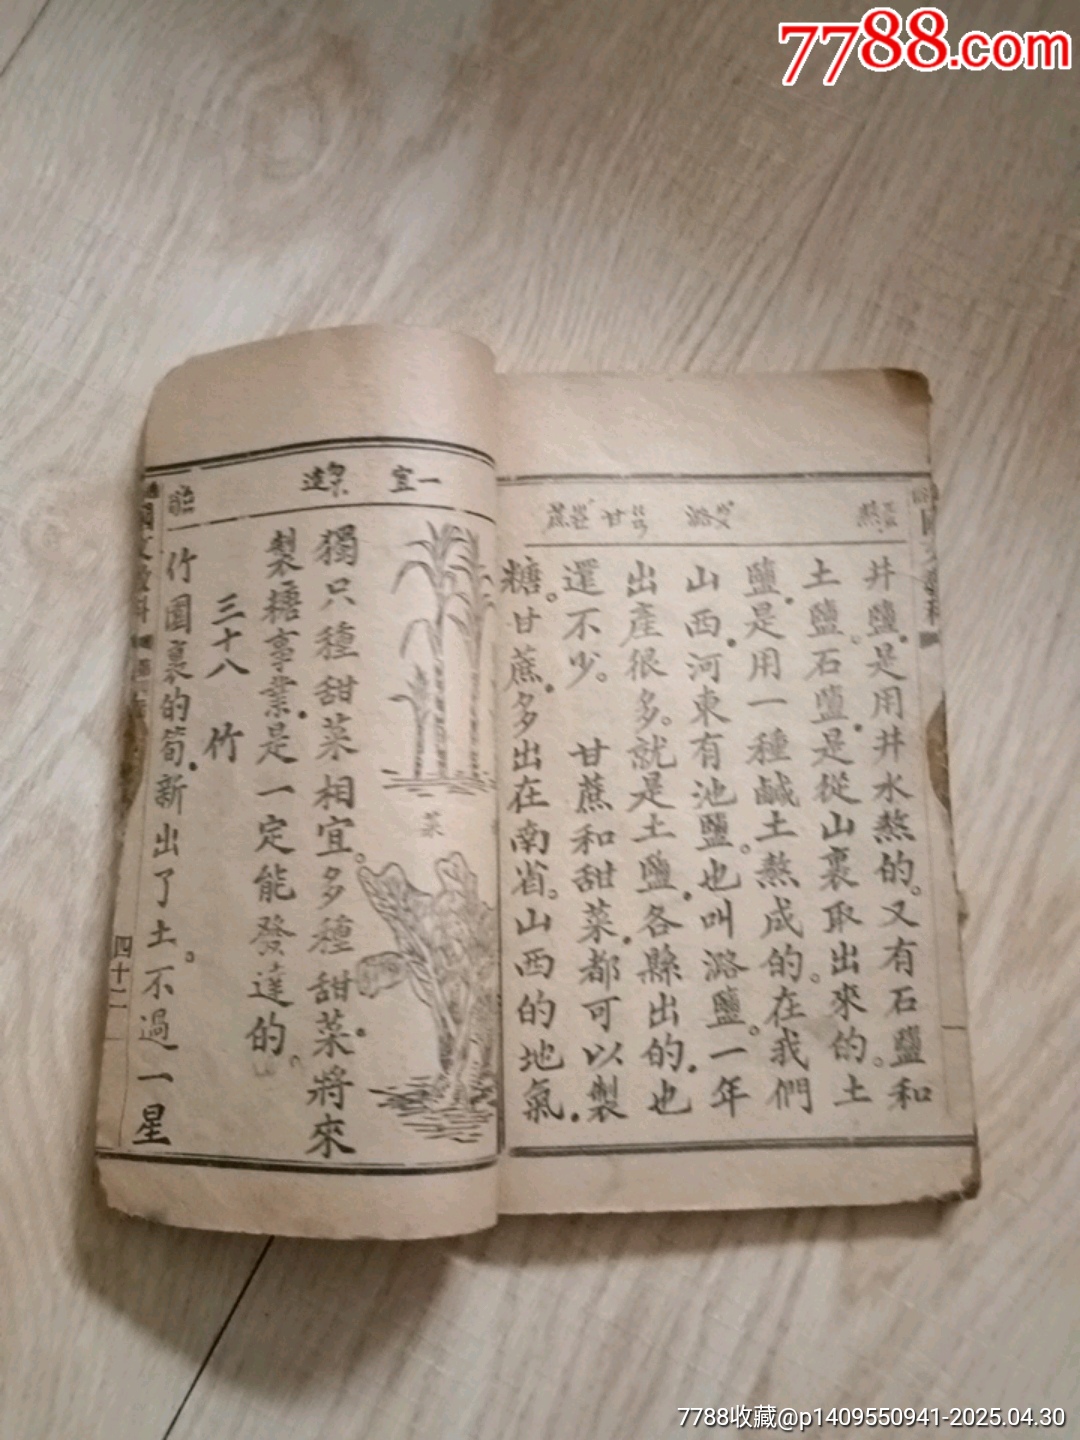 7788.com
熬
潞
甘
蔗
井鹽。是用井水熬的。又有石鹽和
土鹽。石鹽。是從山裏取出來的。土
鹽。是用一種鹹土熬成的。在我們
山西。河東有池鹽。也叫潞鹽。一年
出產很多。就是土鹽。各縣出的。也
還不少。 甘蔗和甜菜。都可以製
糖。甘蔗。多出在南省。山西的地氣。
一宜
達
菜
獨只種甜菜相宜。多種甜菜。將來
製糖事業。是一定能發達的。
三十八 竹
竹園裏的筍。新出了土。不過一星
四十二
7788收藏@p1409550941-2025.04.30